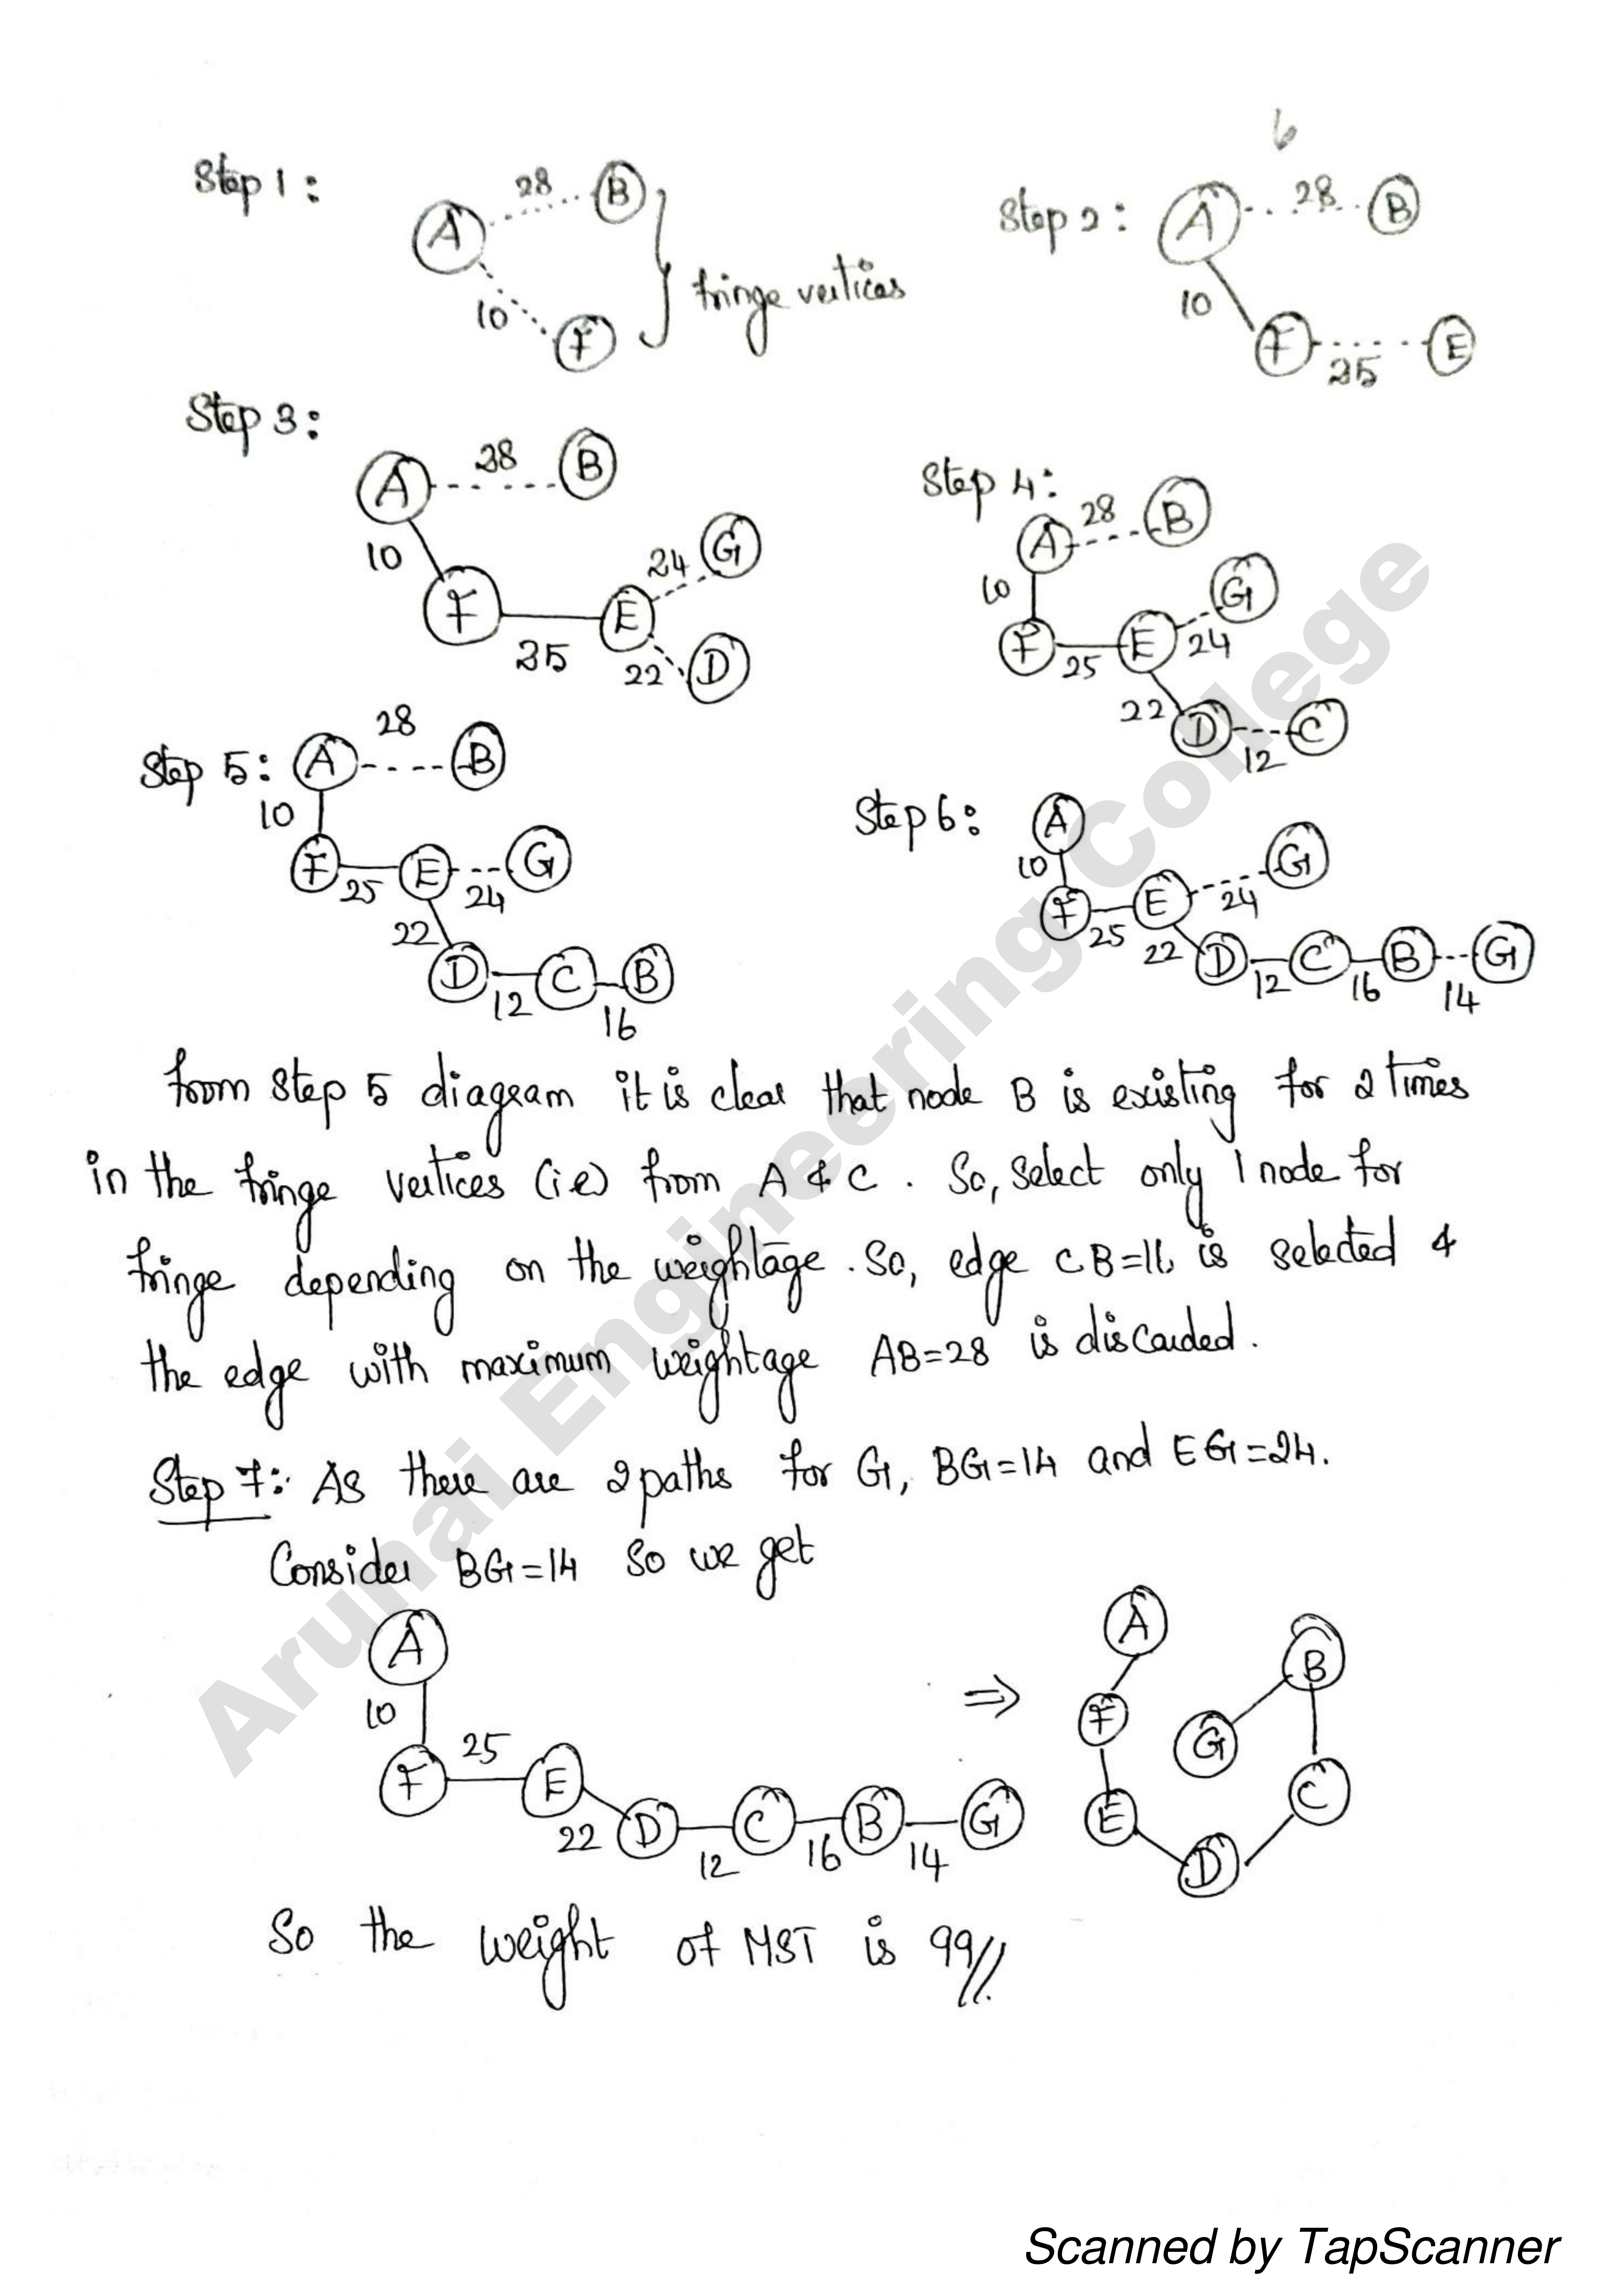 6
Step 1:
28
A
B
10
F
fringe vertices
Step 2:
A
28
B
10
F
25
E
Step 3:
A
28
B
10
24
G
F
25
E
22
D
Step 4:
28
A
B
10
G
F
25
E
24
22
D
12
C
Step 5:
28
A
B
10
F
25
E
24
G
22
D
12
C
16
B
Step 6:
A
10
G
F
25
E
24
22
D
12
C
16
B
14
G
from step 5 diagram it is clear that node B is existing for 2 times
in the fringe vertices (i.e) from A & C. So, select only 1 node for
fringe depending on the weightage. So, edge CB=16 is selected &
the edge with maximum weightage AB=28 is discarded.
Step 7: As there are 2 paths for G, BG=14 and EG=24.
Consider BG=14 so we get
A
10
F
25
E
22
D
12
C
16
B
14
G
⇒
A
B
F
G
C
E
D
So the weight of MST is 99//.
Arunai Engineering College
Scanned by TapScanner